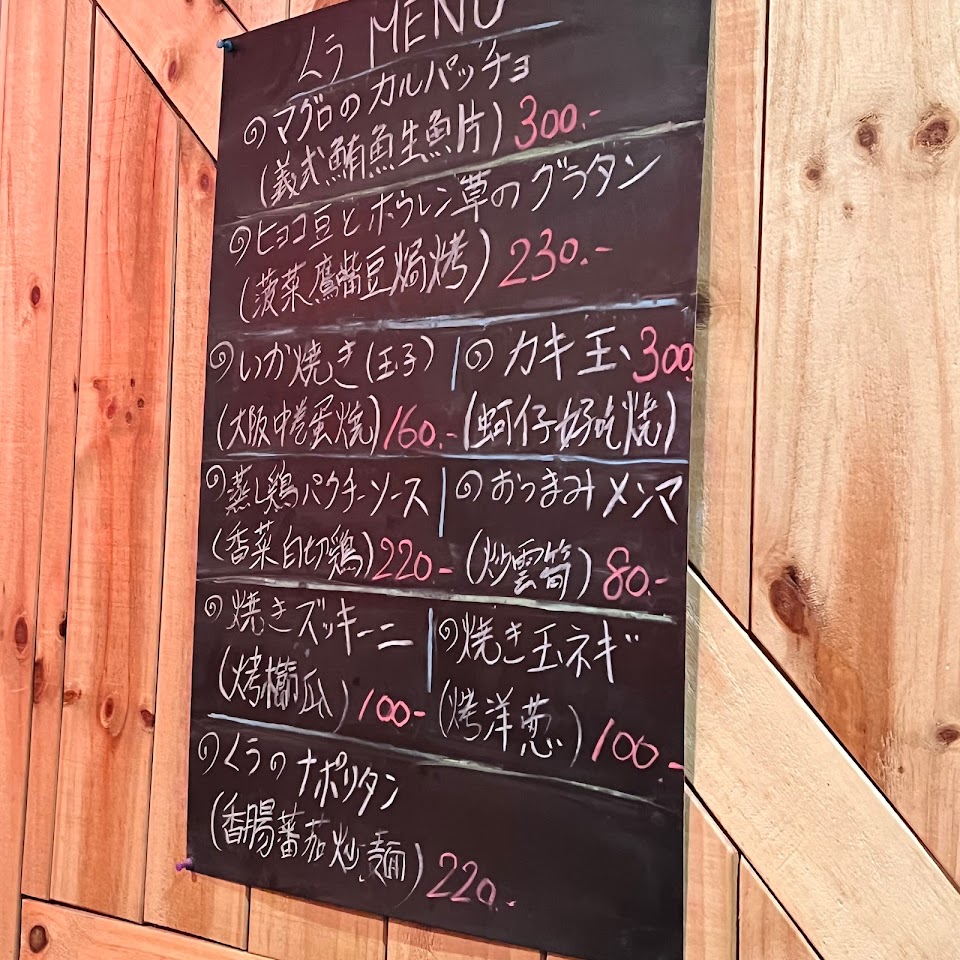 くう MENU
マグロのカルパッチョ
(義式鮪魚生魚片) 300.-
ヒヨコ豆とホウレン草のグラタン
(菠菜鷹嘴豆焗烤) 230.-
いか焼き(玉子)
(大阪中卷蛋燒) 160.-
カキ玉 300.
(蚵仔好吃燒)
蒸し鶏パクチーソース
(香菜白切鶏) 220-
おつまみメンマ
(炒雲筍) 80.-
焼きズッキーニ
(烤櫛瓜) 100-
焼き玉ネギ
(烤洋葱) 100.-
くうのナポリタン
(香腸蕃茄炒麵) 220.-